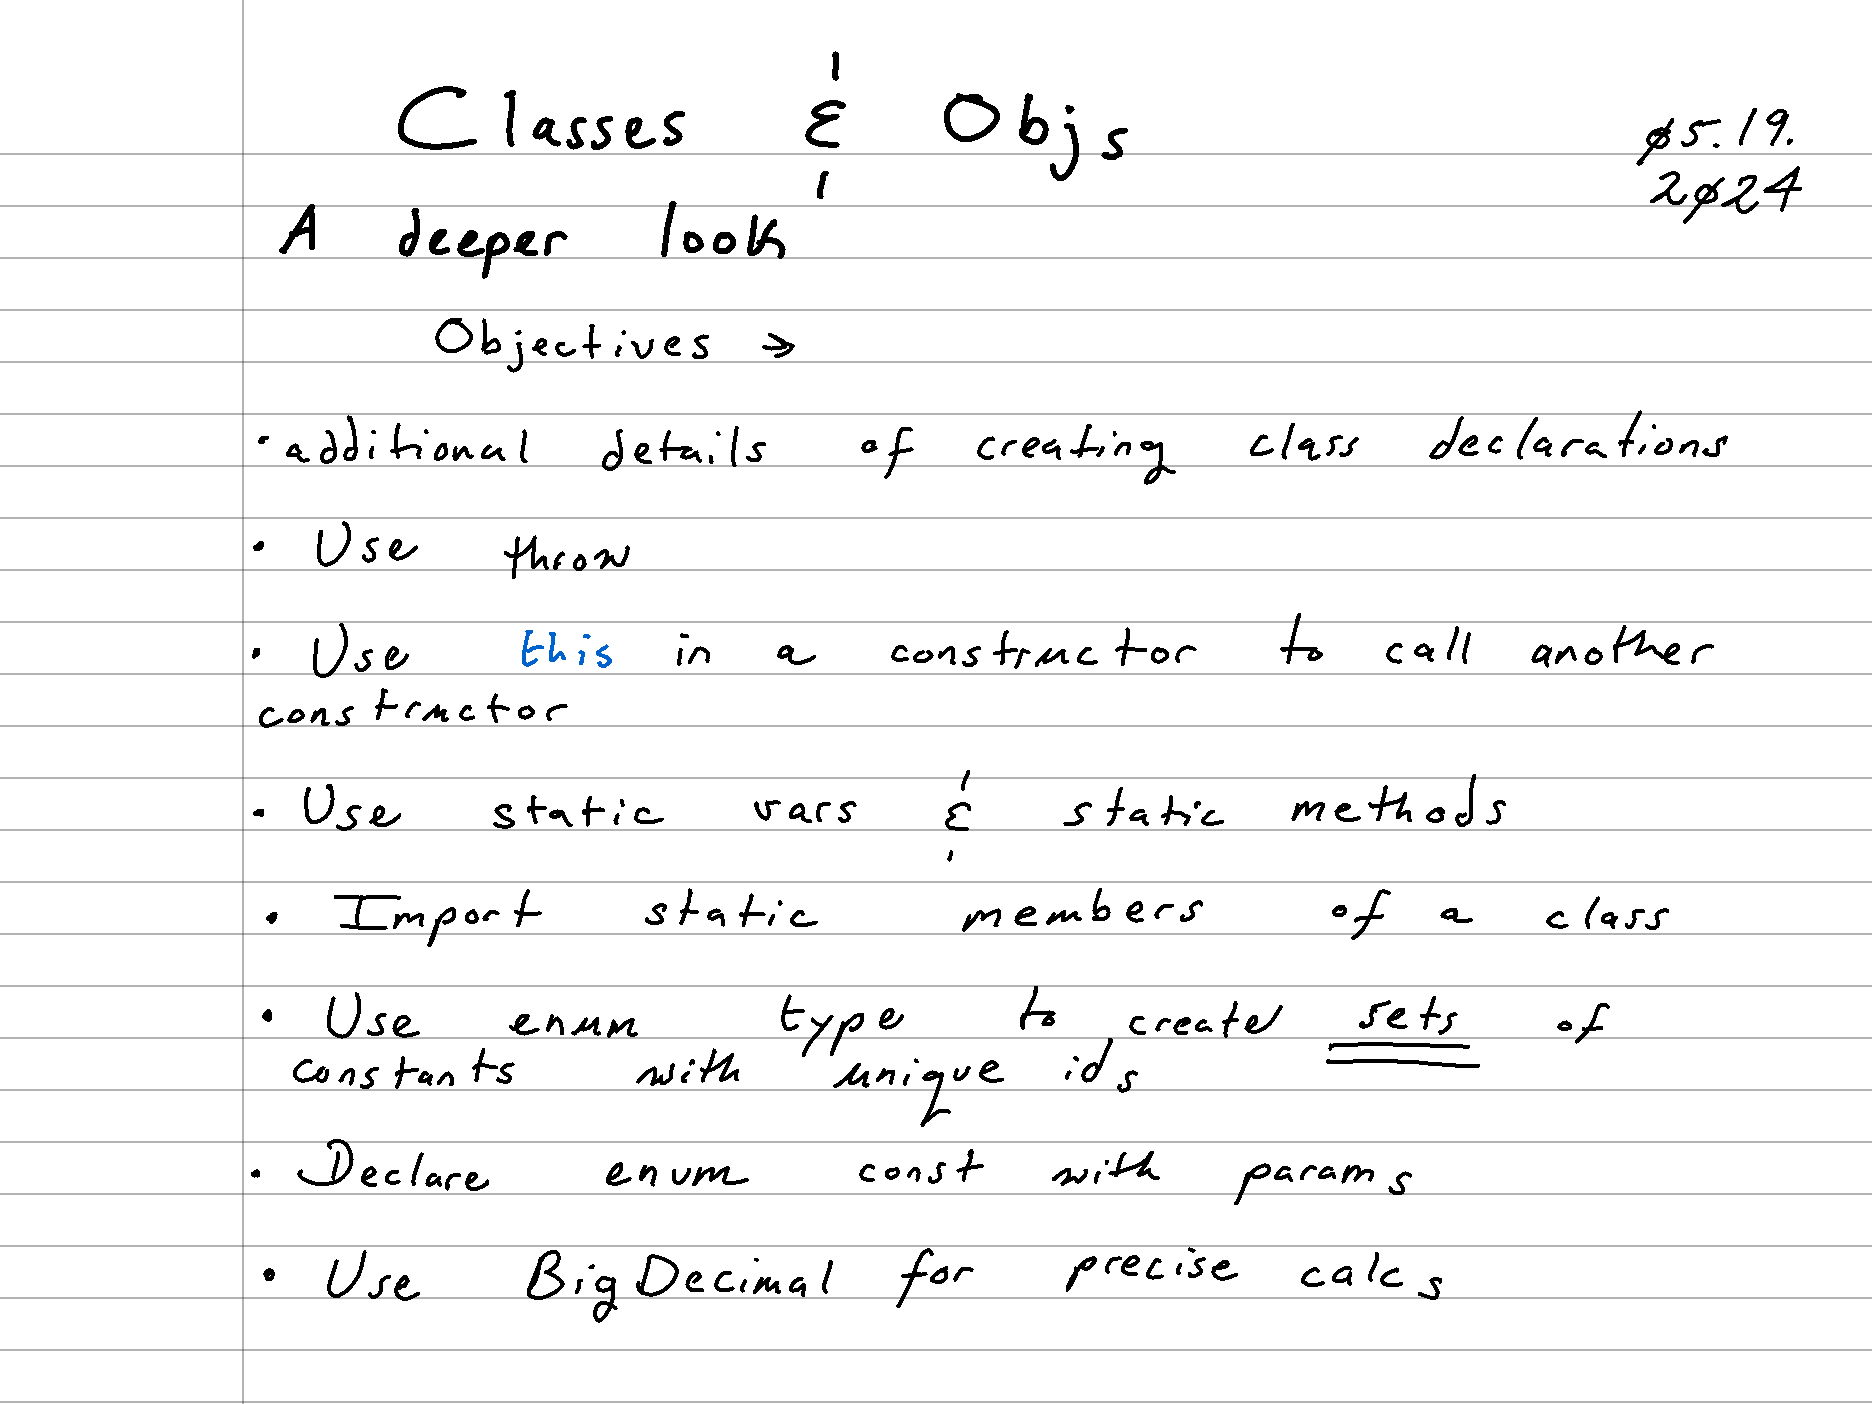 Classes & Objs
05.19.
2024
A deeper look
Objectives →
• additional details of creating class declarations
• Use throw
• Use this in a constructor to call another
constructor
• Use static vars & static methods
• Import static members of a class
• Use enum type to create sets of
constants with unique ids
• Declare enum const with params
• Use BigDecimal for precise calcs